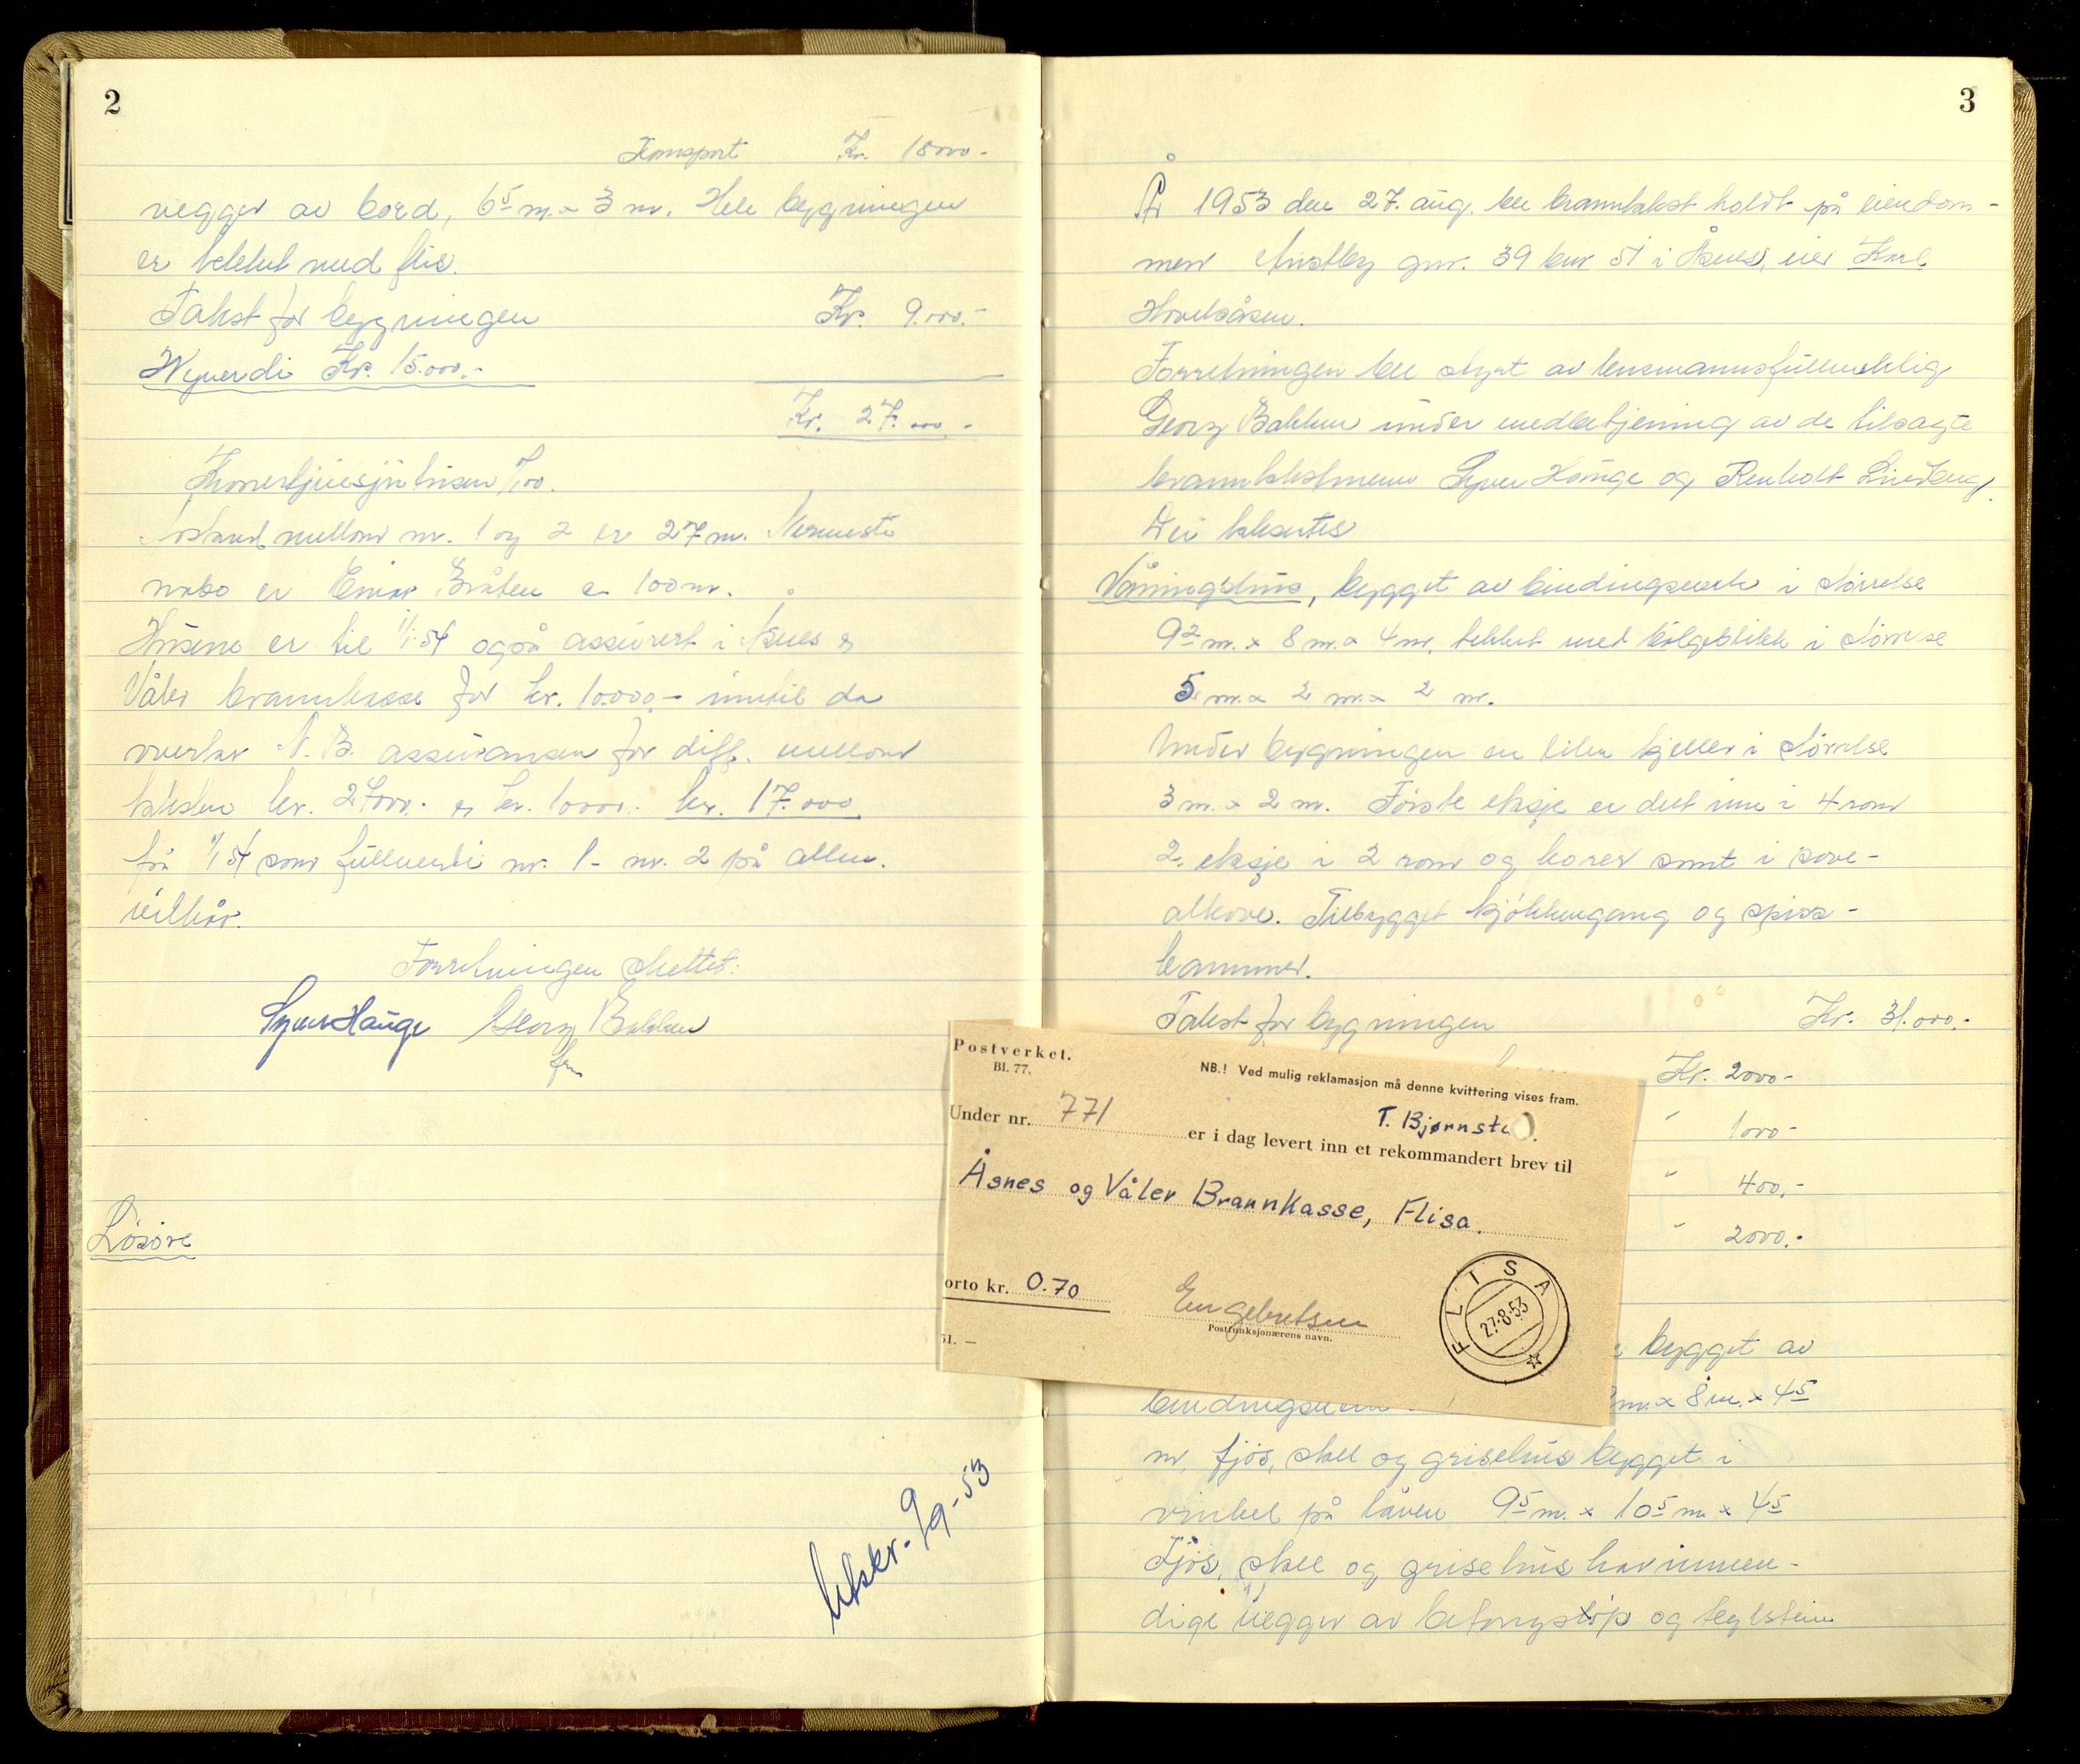 2
Transport Kr. 18000.-
vegger av bord, 6⁵ m. x 3 m. Hele bygningen
er tekket med flis.
Takst for bygningen Kr. 9.000.-
Nyverdi Kr. 15.000.-
Kr. 27.000.-
1/00.
Avstand mellom nr. 1 og 2 er 27 m. Nermeste
nabo er Einar Bråten ca 100 m.
Husene er til 1/1.54 også assurert i Åsnes og
Våler brannkasse for kr. 10.000.- inntil da
overtar N.B. assuransen for diff. mellom
taksten kr. 27000.- og kr. 10000.- kr. 17.000
fra 1/1 54 som fullverdi nr. 1 - nr. 2 på alm.
vilkår.
Forretningen sluttet:
Syver Hauge Georg Bakken
fm
Løsøre
Utskr. 9/9-53
3
År 1953 den 27. aug. ble branntakst holdt på eiendom-
men gnr. 39 bnr 51 i Åsnes, eier Karl
Hovelsåsen.
Forretningen ble styrt av lensmannsfullmektig
Georg Bakken under medbetjening av de tilsagte
branntakstmenn Syver Hauge og Renholt Lindberg.
Der taksertes
Våningshus, bygget av bindingsverk i størrelse
9² m. x 8 m. x 4 m, tekket med bølgeblikk i størrelse
5 m. x 2 m. x 2 m.
Under bygningen en liten kjeller i størrelse
3 m. x 2 m. Første etasje er delt inn i 4 rom
2. etasje i 2 rom og korer samt i sove-
alkove. Tilbygget kjøkkengang og spiss-
kammer.
Takst for bygningen Kr. 31.000.-
Kr. 2000.-
" 1000.-
" 400.-
" 2000.-
Postverket.
Bl. 77.
NB.! Ved mulig reklamasjon må denne kvittering vises fram.
T. Bjørnst
Under nr. 771 er i dag levert inn et rekommandert brev til
Åsnes og Våler Brannkasse, Flisa.
orto kr. 0.70
Engebretsen
Postfunksjonærens navn.
51. —
FLISA
27.8.53
bygget av
m. x 8 m. x 4⁵
m, fjøs, stall og grisehus bygget i
vinkel på låven 9⁵ m. x 10⁵ m x 4⁵
Fjøs, stall og grisehus har innven-
dige vegger av betongstøp og teglstein